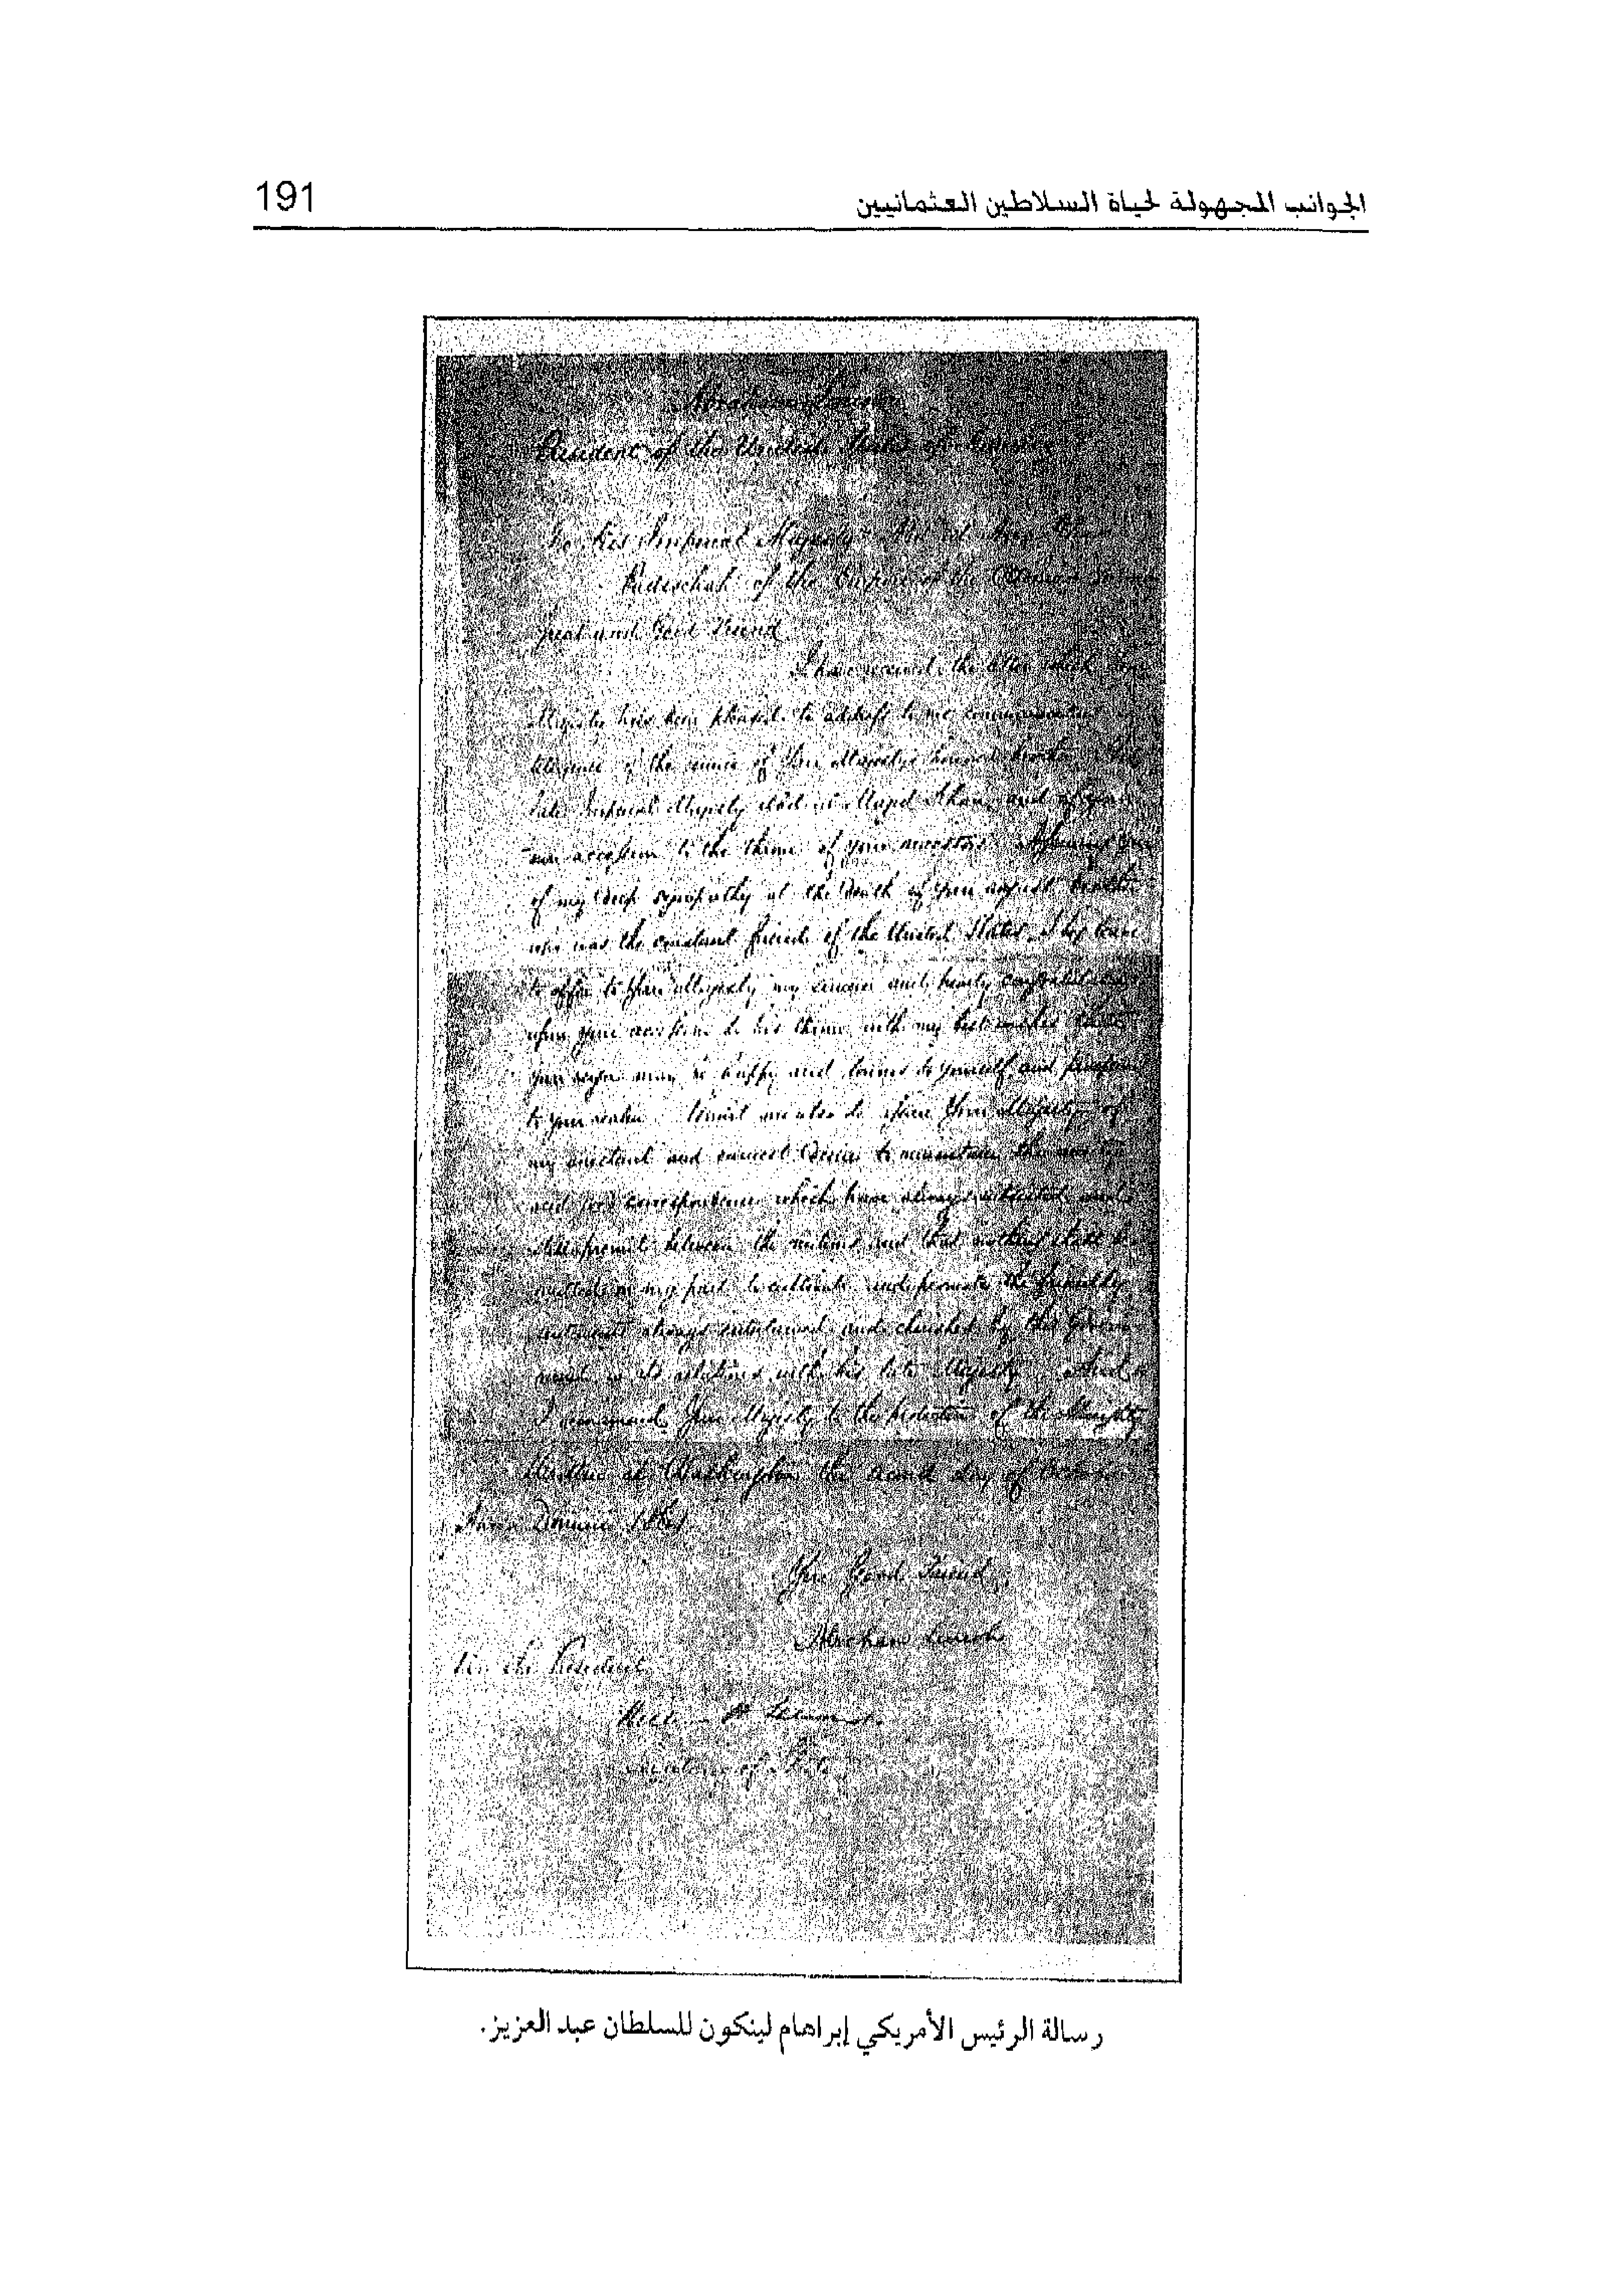 الجوانب المجهولة لحياة السلاطين العثمانيين
191
Abraham Lincoln
President of the United States of America
To His Imperial Majesty Abd ul Aziz Khan
Padischah of the Empire of the Ottoman
Great and Good Friend
I have received the letter which Your
Majesty has been pleased to address to me communicating
of the demise of Your Majesty's honored brother, His
late Imperial Majesty Abd ul Mejid Khan, and of your
own accession to the throne of your ancestors. Assuring You
of my deep sympathy at the death of your august brother
who was the constant friend of the United States, I beg leave
to offer to Your Majesty my sincere and hearty congratulations
upon your accession to his throne, with my best wishes that
your reign may be happy and to yourself, and prosperous
to your realm. Permit me also to assure Your Majesty of
my constant and earnest desire to maintain the amity
and good correspondence which have always subsisted and
still between the nations and that nothing shall be
omitted on my part to cultivate and promote the friendly
sentiments always entertained and cherished by this Govern
ment in its relations with his late Majesty. And so
I commend Your Majesty to the protection of the Almighty
Written at Washington the second day of October
Anno Domini 1861
Your Good Friend,
Abraham Lincoln
By the President
William H Seward
Secretary of State
رسالة الرئيس الأمريكي إبراهام لينكون للسلطان عبد العزيز.